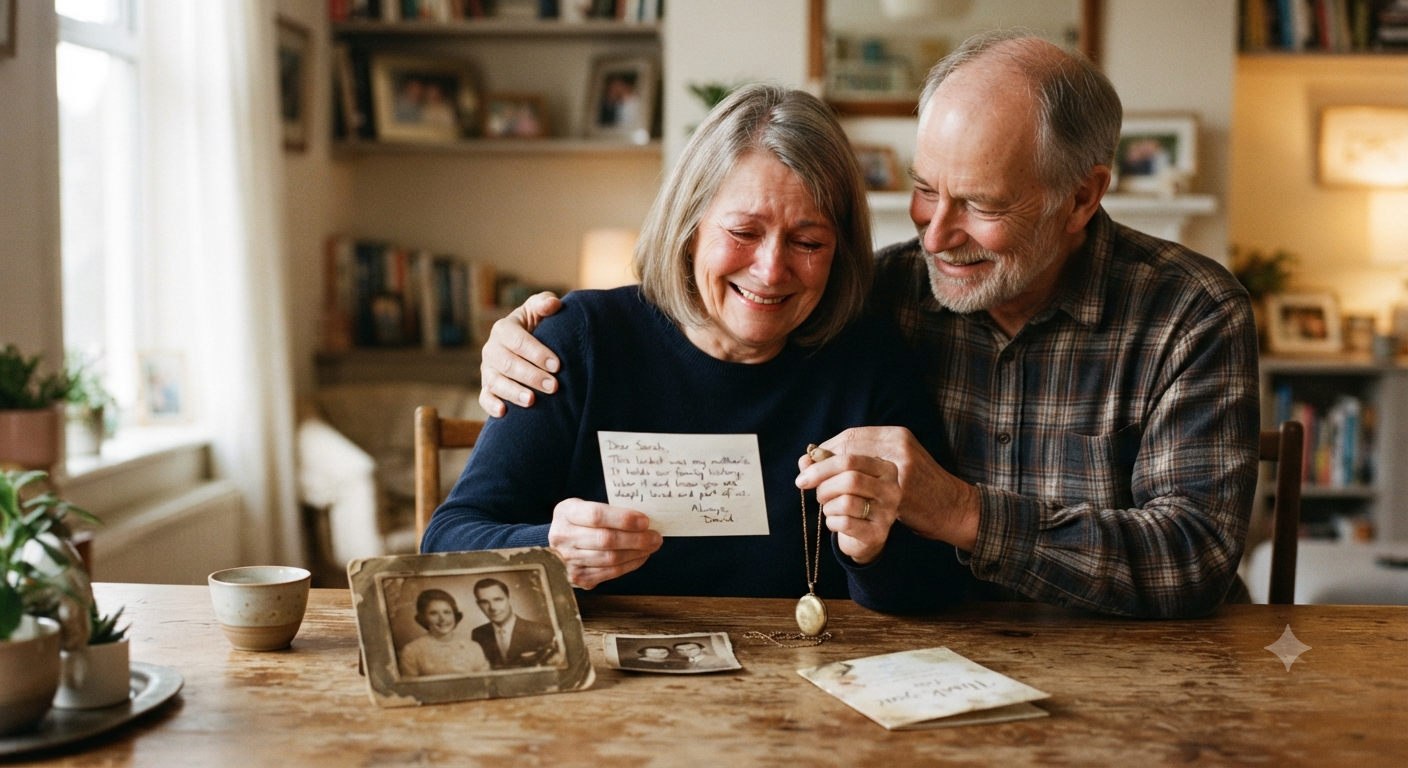 Dear Sarah,
This locket was my mother's.
It holds our family history.
and know you are
deeply loved and part of us.
Always,
David
Thank you